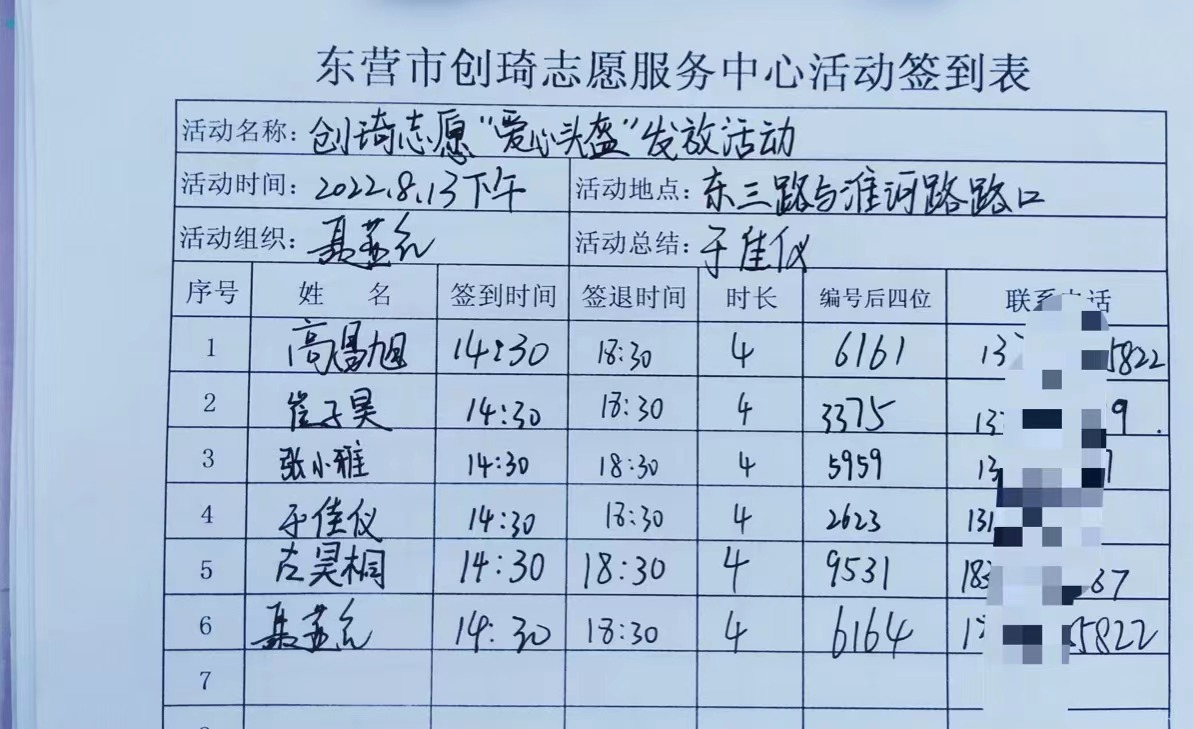 东营市创琦志愿服务中心活动签到表
活动名称: 创琦志愿“爱心头盔”发放活动
活动时间: 2022.8.13下午 活动地点: 东三路与淮河路路口
活动组织: 活动总结: 于佳仪
序号 姓 名 签到时间 签退时间 时长 编号后四位 联系电话
1 高昌旭 14:30 18:30 4 6161 13 5822
2 崔子昊 14:30 18:30 4 3375 13 9
3 张小雅 14:30 18:30 4 5959 13
4 于佳仪 14:30 18:30 4 2623 131
5 左昊桐 14:30 18:30 4 9531 183 37
6 14:30 18:30 4 6164 1 5822
7